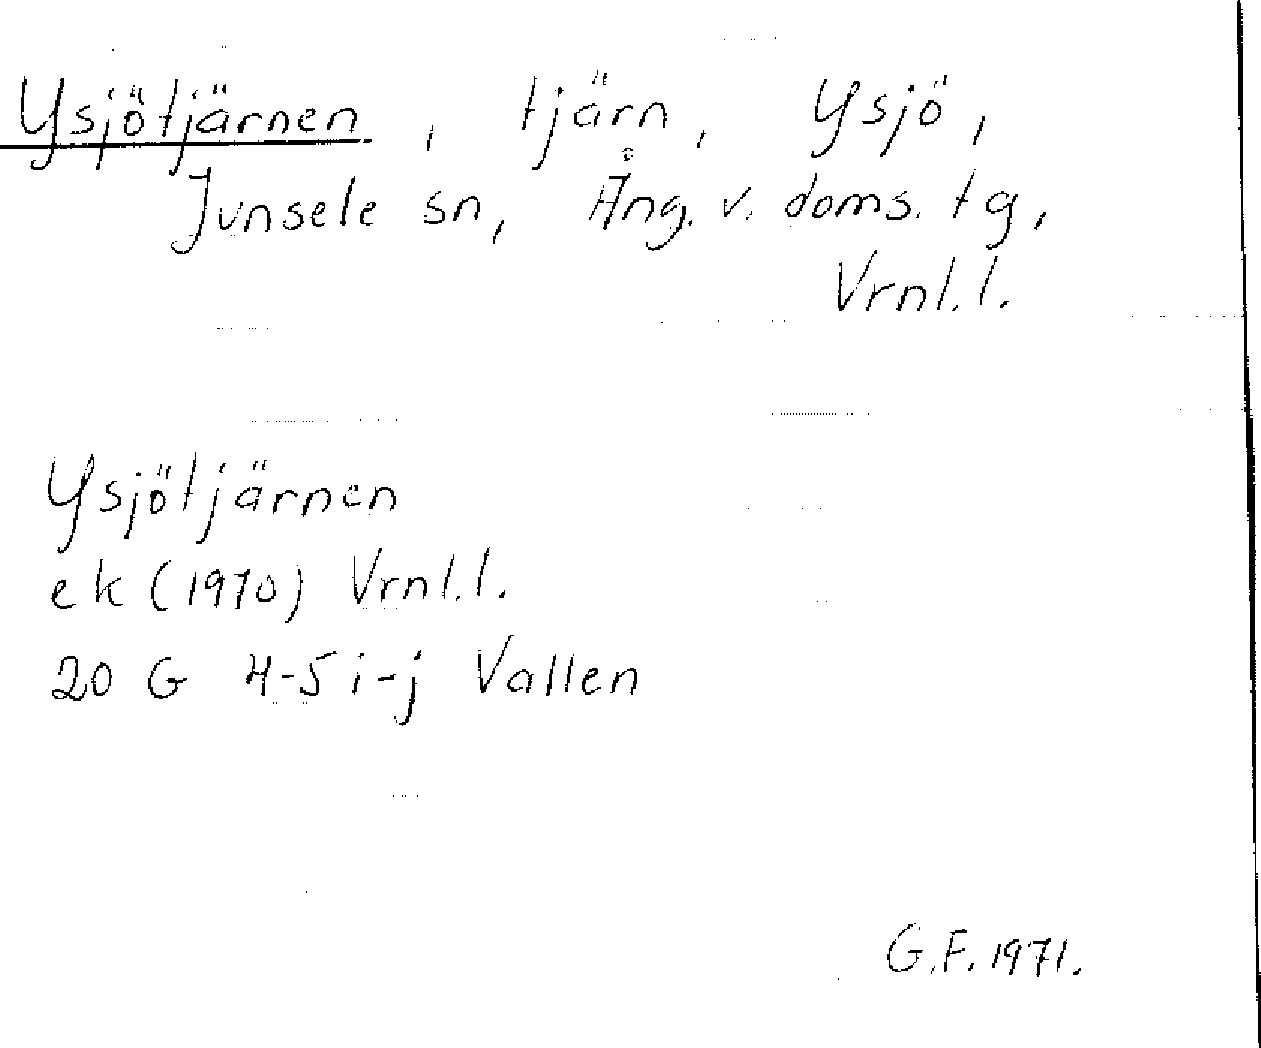 Ysjötjärnen, tjärn, Ysjö,
Junsele sn, Ång. v. doms. tg,
Vrnl. l.
Ysjötjärnen
ek (1970) Vrnl. l.
20 G 4-5 i-j Vallen
G.F. 1971.